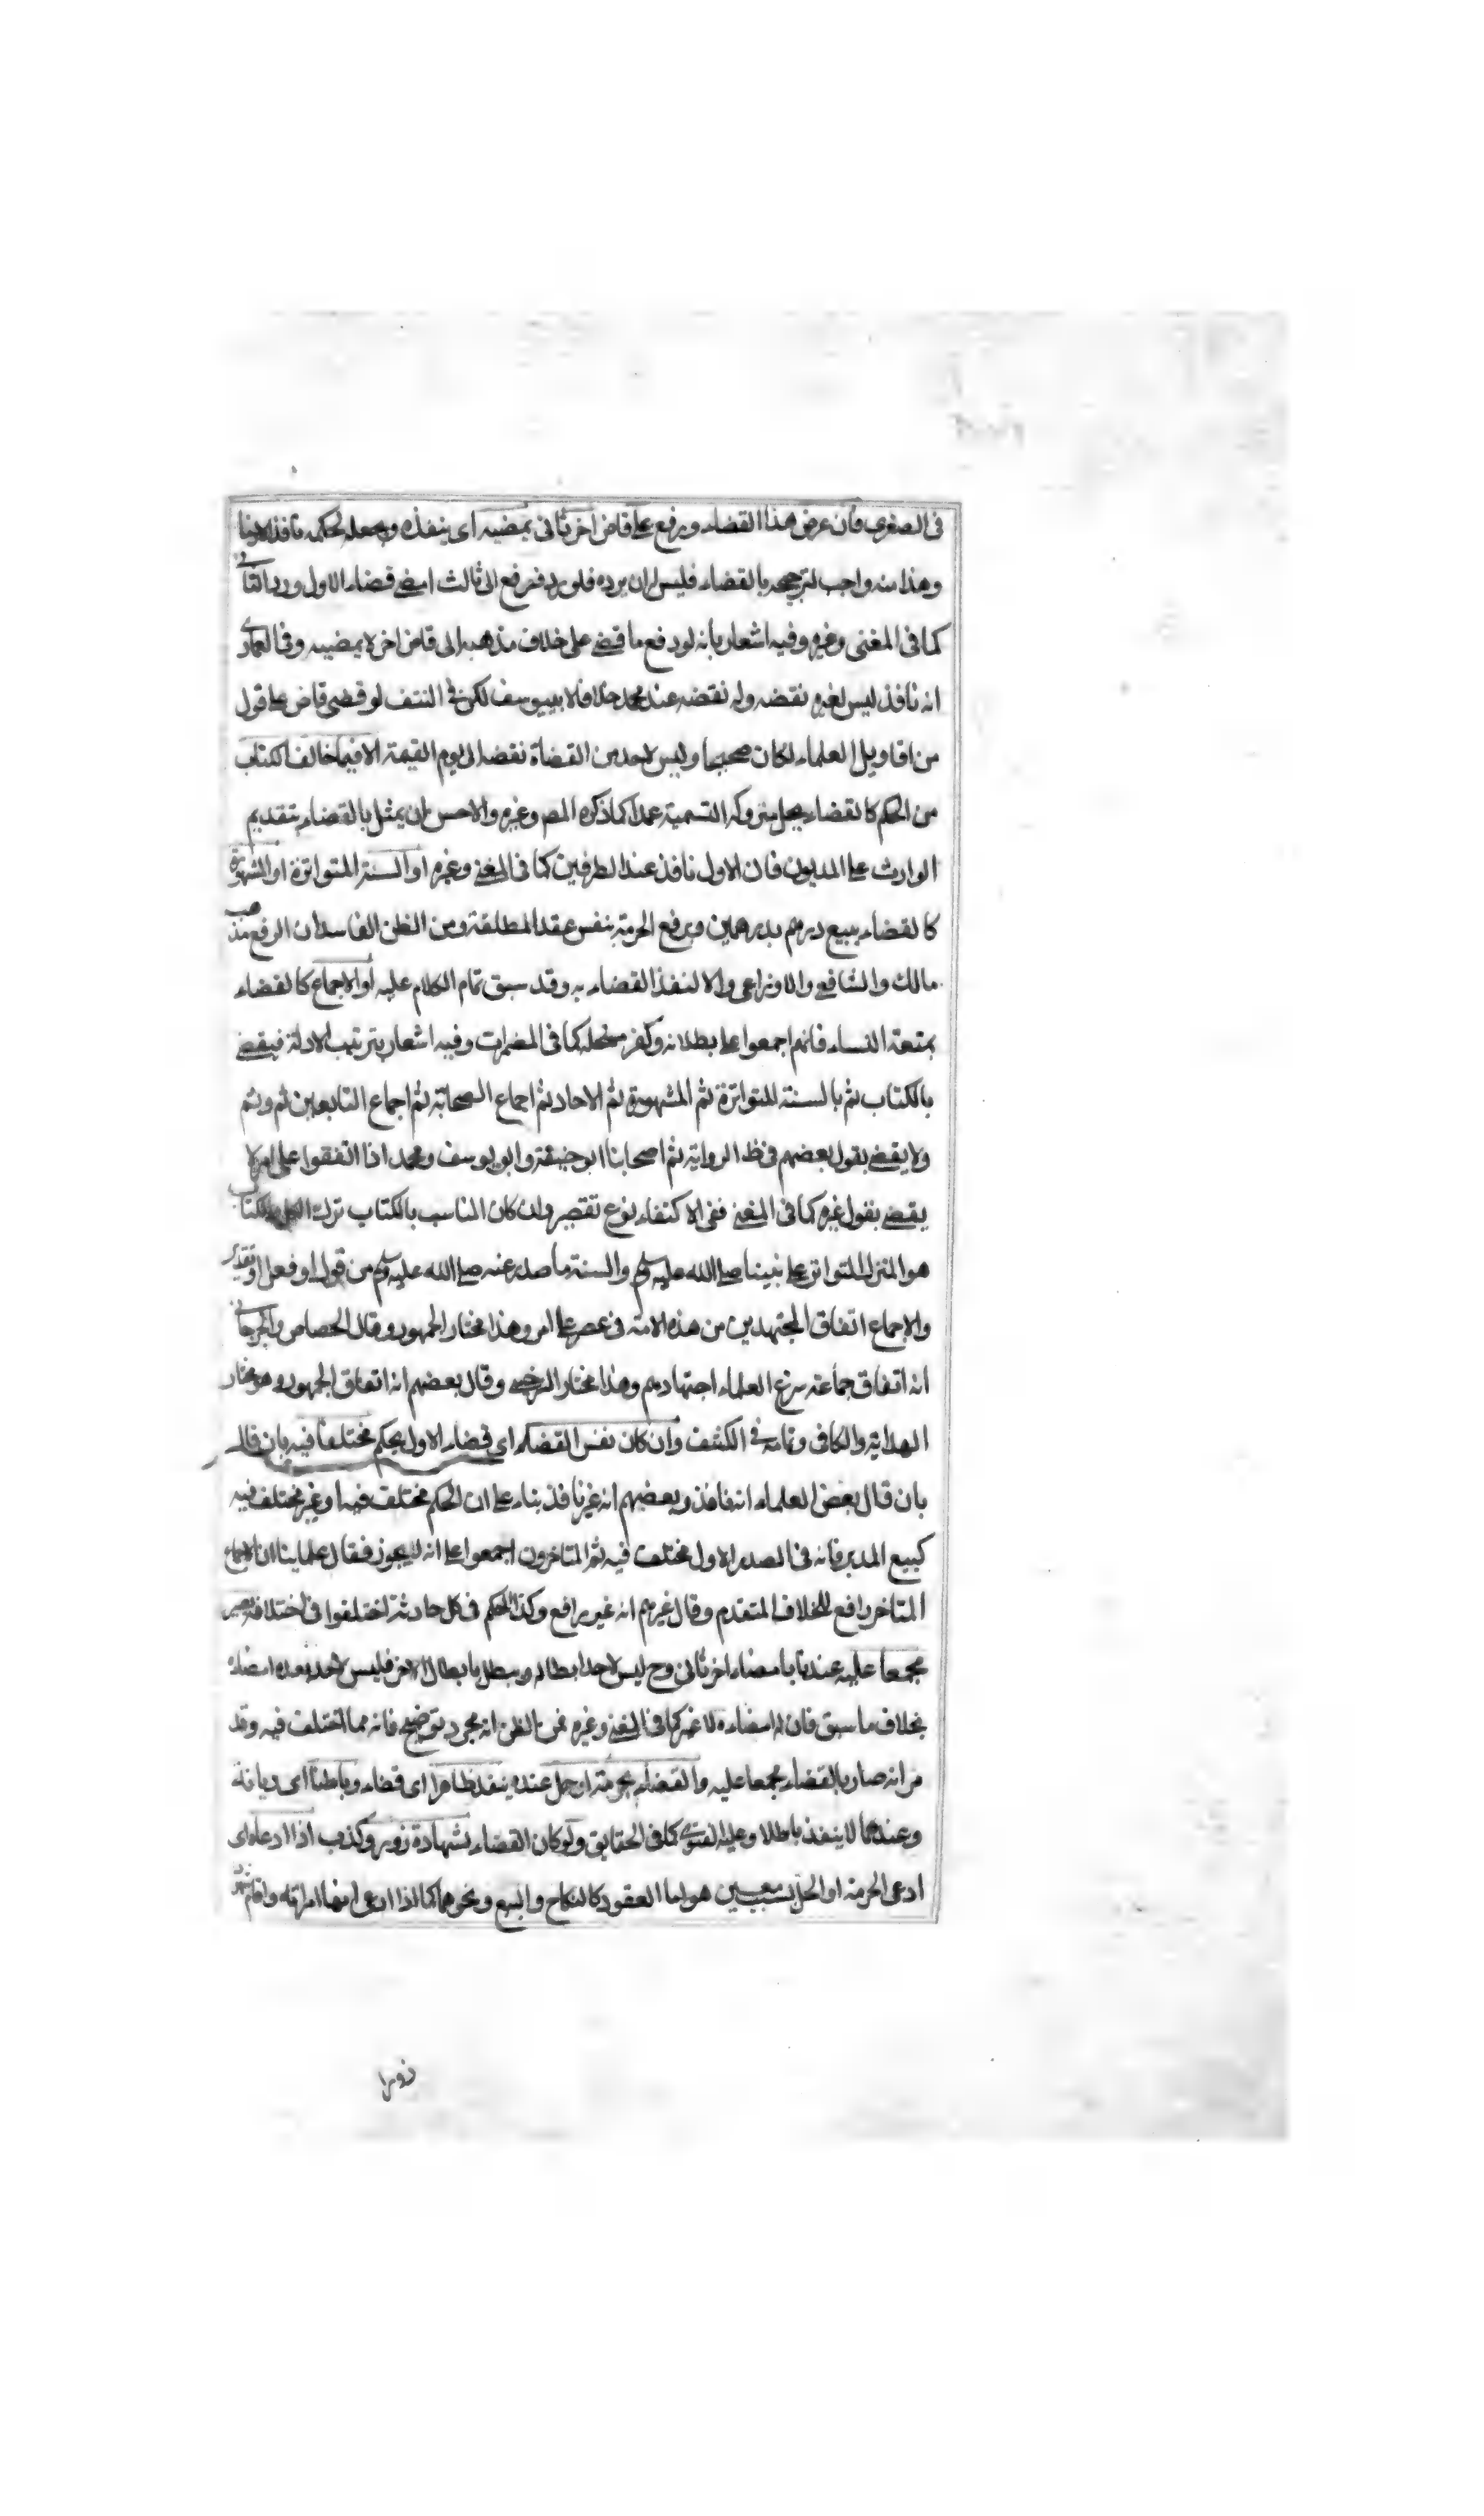 فى الصغرى فان عرض هذا القضاء ورفع على قاض اخر ثانى يمضيه اى ينفذه ويجعله حكمه نافذا
وهذا منه واجب لترجيحه بالقضاء فليس له ان يرده فلو رد فرفع الى ثالث امضى قضاء الاول ورد الثانى
كما فى المغنى وغيره وفيه اشعار بانه لو رفع ما قضى على خلاف مذهبه الى قاض اخر لا يمضيه وفى العمادى
انه نافذ ليس لغيره نقضه وله نقضه عند محمد خلافا لابى يوسف لكن فى النتف لو قضى قاض على قول
من اقاويل العلماء لكان صحيحا وليس لاحد من القضاة نقضه الى يوم القيمة الا فيما خالف الكتاب
من الحكم كالقضاء بحل متروكة التسمية عمدا كما ذكره المص وغيره والاحسن ان يمثل بالقضاء بتقديم
الوارث على المديون فان الاول نافذ عند الطرفين كما فى المغنى وغيره او السنة المتواترة او المشهورة
كالقضاء ببيع درهم بدرهمين وبرفع الحرمة بنفس عقد المطلقة ومن الظن الفاسد ان الرفع مذهب
مالك والشافعى والاوزاعى والا لنفذ القضاء به وقد سبق تمام الكلام عليه او الاجماع كالقضاء
بمتعة النساء فانهم اجمعوا على بطلانه وكفر مستحله كما فى المضمرات وفيه اشعار بترتيب الادلة فيقضى
بالكتاب ثم بالسنة المتواترة ثم المشهورة ثم الاحاد ثم اجماع الصحابة ثم اجماع التابعين ثم وثم
ولا يقضى بقول بعضهم فى ظ الرواية ثم اصحابنا ابو حنيفة وابو يوسف ومحمد اذا اتفقوا على امر لا
يقضى بقول غيره كما فى المغنى ففى الاكتفاء نوع تقصير وان كان المناسب بالكتاب ترك الكل والكتاب
هو المنزل المتواتر على نبينا صلى الله عليه وسلم والسنة ما صدر عنه صلى الله عليه وسلم من قول او فعل او تقدير
والاجماع اتفاق المجتهدين من هذه الامة فى عصر على امر وهذا مختار الجمهور وقال الجصاص والجرجانى
انه اتفاق جماعة سوغ العلماء اجتهادهم وهذا مختار السرخسى وقال بعضهم انه اتفاق الجمهور وهو مختار
الهداية والكافى وتمامه فى الكشف وان كان نفس القضاء اى قضاء الاول بحكم مختلفا فيه بان قال
بان قال بعض العلماء انه نافذ وبعضهم انه غير نافذ بناء على ان الحكم مختلف فيه او غير مختلف فيه
كبيع المدبر فانه فى الصدر الاول مختلف فيه ثم المتاخرون اجمعوا على انه لا يجوز فقال علماينا ان الاجماع
المتاخر رافع للخلاف المتقدم وقال غيرهم انه غير رافع وكذا الحكم فى كل حادثة اختلفوا فى اختلافه يصير
مجمعا عليه عندنا بامضاء اخر ثانى وح ليس لاحد ابطاله ويبطل بابطال الاخر فليس لاحد بعده امضاؤه
بخلاف ما سبق فان له امضاءه لا غير كما فى المغنى وغيره فمن الظن انه مجرد توضيح فانه مما اختلف فيه وقد
مر انه صار بالقضاء مجمعا عليه والقضاء بحرمة او حل عنده ينفذ ظاهرا اى قضاء وباطنا اى ديانة
وعندهما لا ينفذ باطلا وعليه الفتوى كما فى الحقايق ولو كان القضاء بشهادة زور وكذب اذا ادعاه اى
ادعى الحرمة او الحل بسبب معين هو اما العقود كالنكاح والبيع ونحوهما كما اذا ادعى انها امراته واقام شهود
زورا